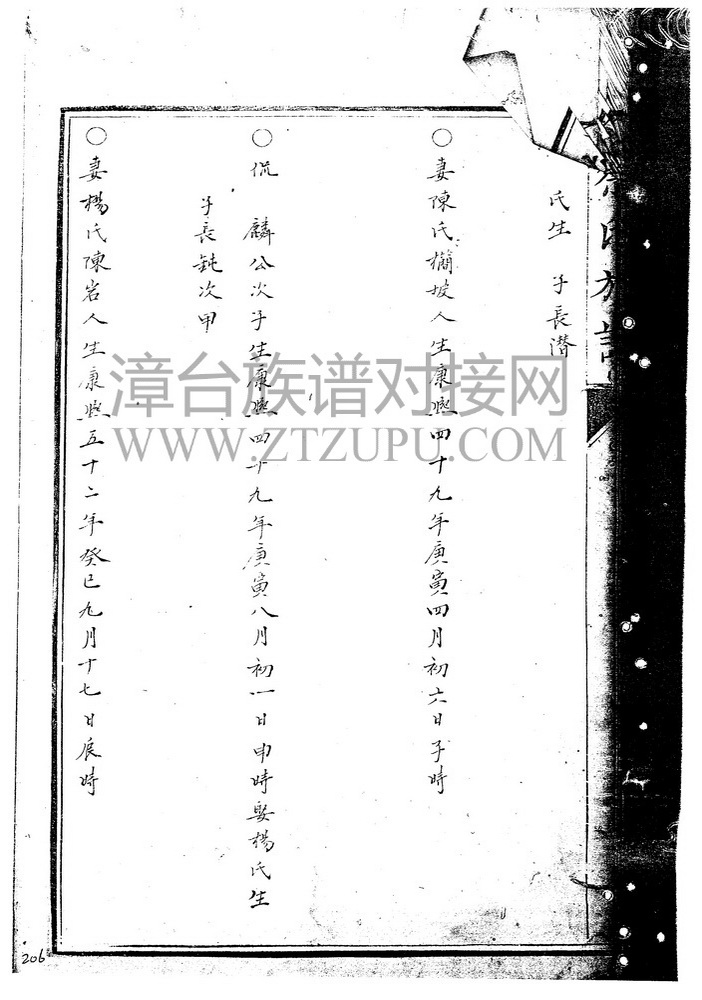 氏族譜
氏生 子長潛
○妻陳氏 坡人生康熙四十九年庚寅四月初六日子時
○侃 麟公次子生康熙四十九年庚寅八月初一日申時娶楊氏生
子長鈍次甲
○妻楊氏陳岩人生康熙五十二年癸巳九月十七日辰時
漳台族谱对接网
WWW.ZTZUPU.COM
206